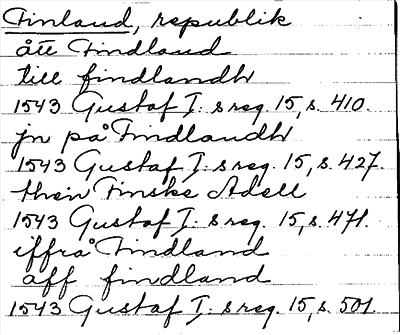 Finland, republik
ått Findland
till findlandh
1543 Gustaf I: s reg. 15, s. 410.
jn på Findlandh
1543 Gustaf I: s reg. 15, s. 427.
then Finske Adell
1543 Gustaf I: s reg. 15, s. 471.
iffrå Findland
aff findland
1543 Gustaf I: s reg. 15, s. 501.